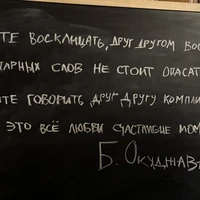 ТЕ ВОСКЛИЦАТЬ, ДРУГ ДРУГОМ ВОС
ПАРНЫХ СЛОВ НЕ СТОИТ ОПАСАТ
ТЕ ГОВОРИТЬ ДРУГ ДРУГУ КОМПЛИ
ЭТО ВСЁ ЛЮБВИ СЧАСТЛИВЫЕ МОМ
Б. ОКУДЖАВ